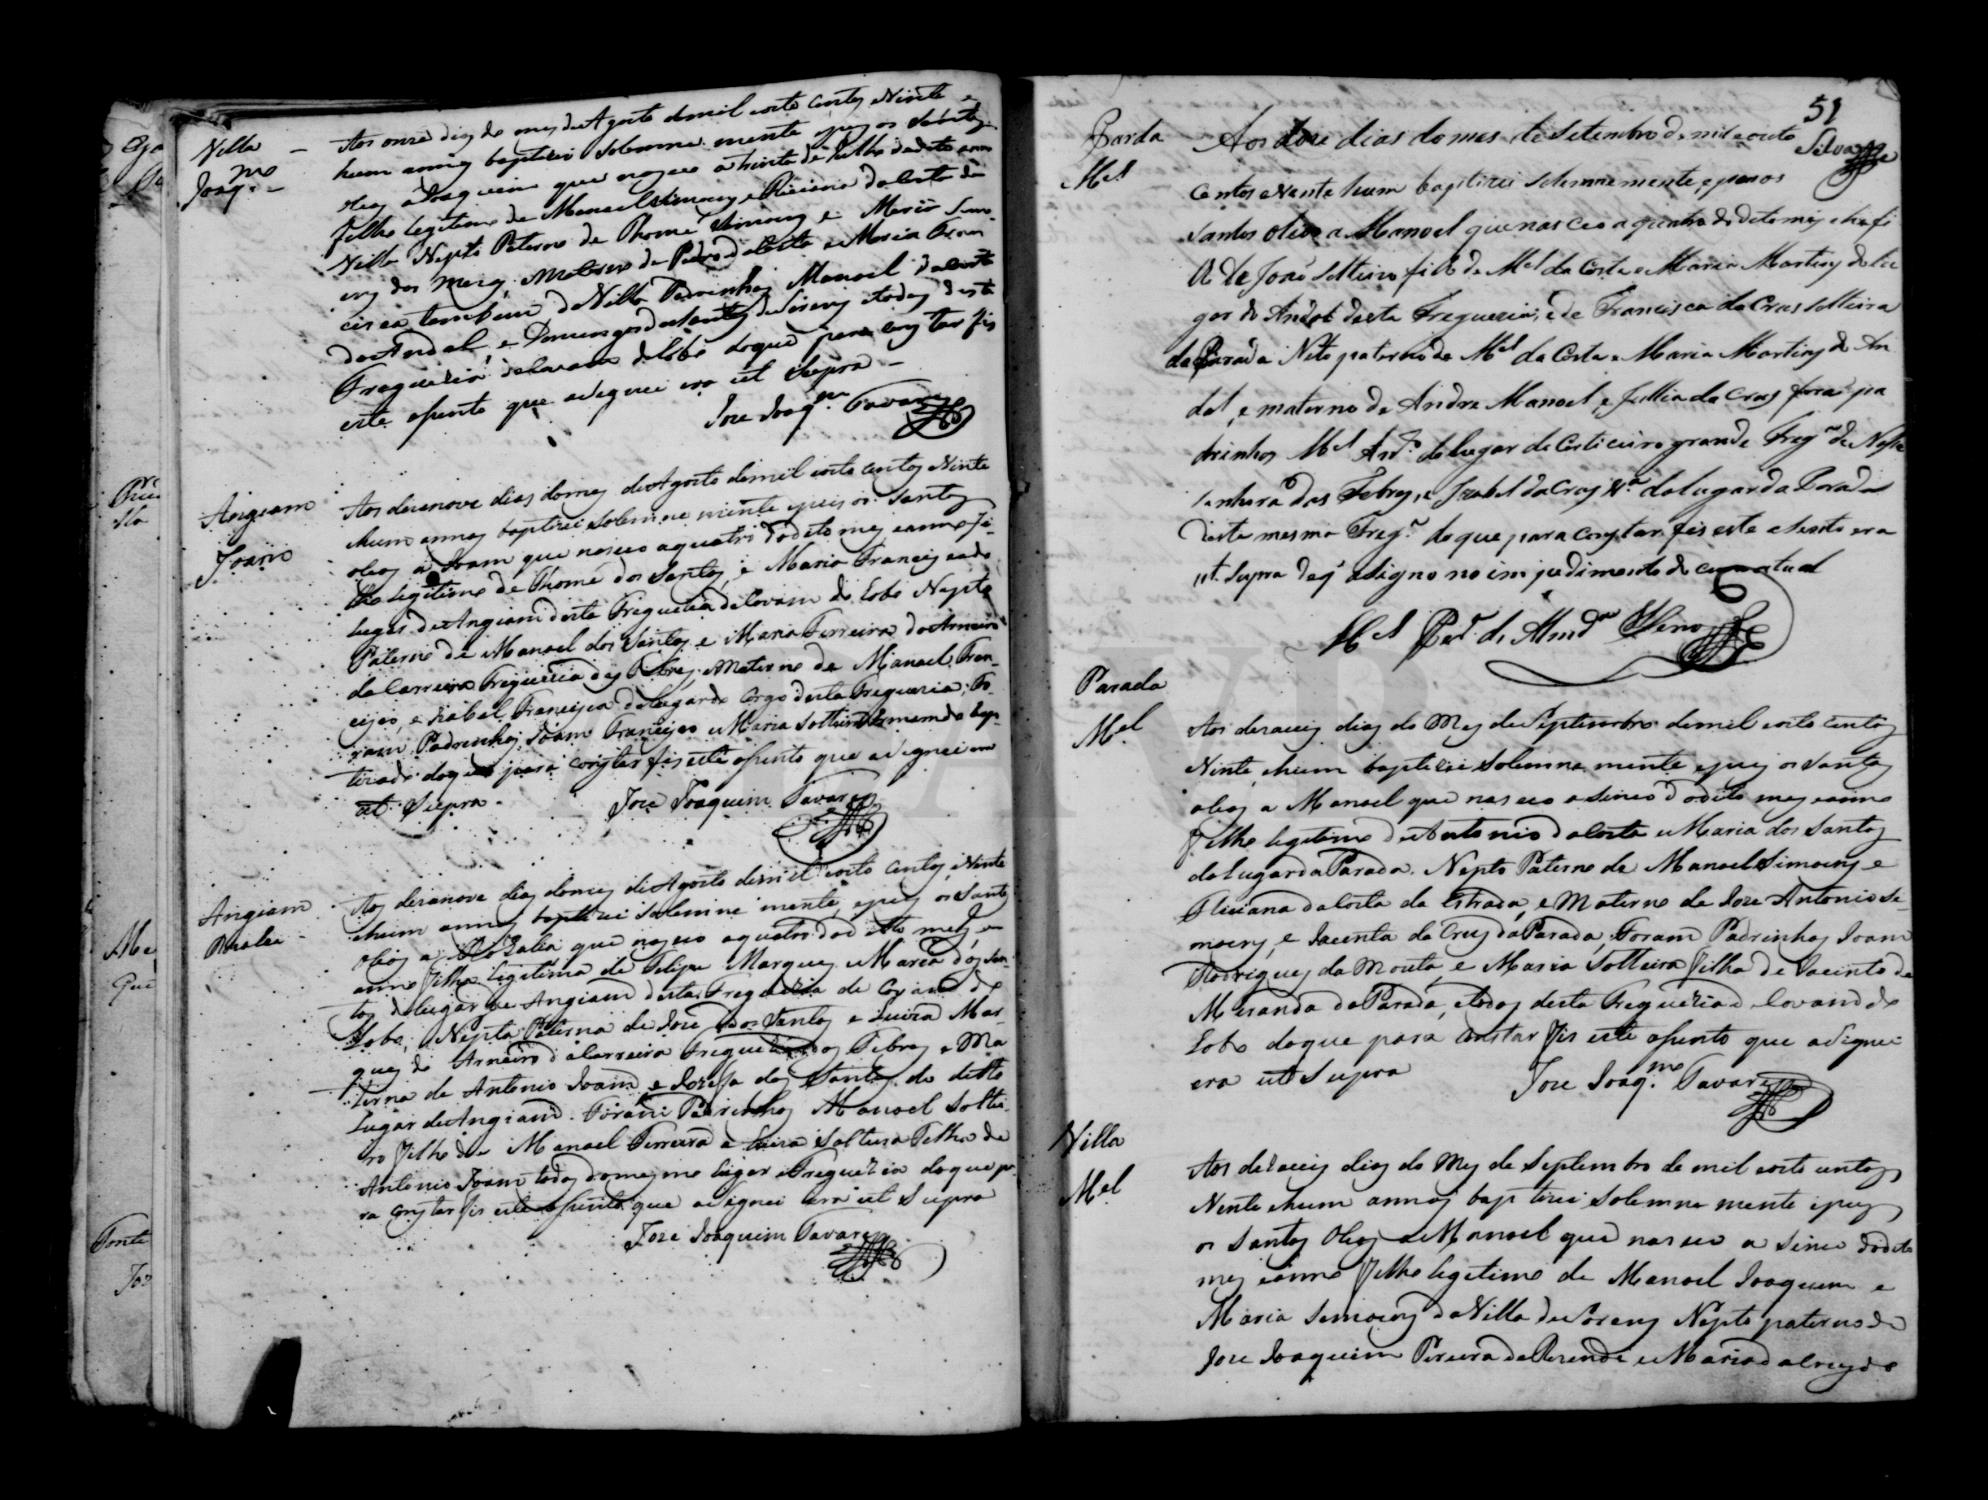 Villa
Joaq.mo
Aos onze dias do mes de Agosto de mil oito centos e Vinte e
hum annos baptizei Solemne mente e pus os Santos
oleos a Joaquim que nasceo a trinta de Julho do dito anno
filho legitimo de Manoel Simoens e Riciana da Costa da
Villa Nepto Paterno de Thomé Simoens e Maria Simo-
ens dos Megs, Materno de Pedro da Costa e Maria
tambem da Villa Padrinhos Manoel da Costa
do Andal, e Domingos dos Santos de Sirens e todos desta
Freguezia de Covam do Lobo do que para constar fis
este asento que asignei era ut Supra
Joze Joaq.m Tavares
Angiam
Joam
Aos dezanove dias do mes de Agosto de mil oito centos Vinte
e hum annos baptizei Solemne mente e pus os Santos
oleos a Joam que nasceo a quatro do dito mes e anno fi-
lho legitimo de Thomé dos Santos, e Maria Francisca do
lugar de Angiam desta Freguezia de Covam do Lobo Nepto
Paterno de Manoel dos Santos e Maria Ferreira do Arneiro
da Carreira Freguezia das Febres, Materno de Manoel Fran-
cisco, e Izabel Francisca do lugar do Corgo desta Freguezia, Fo-
ram Padrinhos Joam Francisco e Maria Solteira Irmam do bap-
tizado do que para constar fis este asento que asignei era
ut Supra.
Joze Joaquim Tavares
Angiam
Rozalia
Aos dezanove dias do mes de Agosto de mil oito centos e Vinte
e hum annos baptizei Solemne mente, e pus os Santos
oleos a Rozalia que nasceo a quatro do dito mes, e
anno filha legitima de Felipe Marques e Maria dos San-
tos do lugar de Angiam desta Freguezia de Covam do
Lobo, Nepta Paterna de Joze dos Santos e Luiza Mar-
ques do Arneiro da Carreira Freguezia das Febres e Ma-
terna de Antonio Joam e Jozefa dos Santos do ditto
Lugar de Angiam. Foram Padrinhos Manoel Soltei-
ro filho de Manoel Ferreira e Luiza Solteira Filha de
Antonio Joam todos do mesmo lugar e Freguezia do que pa-
ra constar fis este asento que asignei era ut Supra
Joze Joaquim Tavares
51
Silva
Parda
M.el
Aos doze dias do mes de Setembro de mil e outo
centos e Vinte hum baptizei solemnemente, e pus os
Santos Oleos a Manoel que nasceo a quatro do dito mes e he fi
lho de José Solteiro filho de M.el da Costa e Maria Martins do lu
gar do Andal desta Freguezia, e de Francisca da Crus solteira
da Parada Neto paterno de M.el da Costa e Maria Martins do An
dal, e materno de Andre Manoel, e Jullia da Crus forão pa
drinhos M.el do lugar do Corticeiro grande Freg.a de Nossa
Senhora das Febres, e Izabel da Crus do lugar da Parada
desta mesma Freg.a do que para constar fis este asento era
ut Supra de q' asigno no impedimento do
M.el de Almd.a
Parada
M.el
Aos dezaceis dias do Mes de Septembro de mil oito centos
Vinte, e hum baptizei Solemne mente e pus os Santos
oleos a Manoel que nasceo a sinco do dito mes e anno
filho legitimo de Antonio da Costa e Maria dos Santos
do Lugar da Parada. Nepto Paterno de Manoel Simoens e
da Costa da Estrada, e Materno de Joze Antonio Si-
moens, e Jacinta da Crus da Parada, Foram Padrinhos Joam
Rodrigues da Mouta, e Maria Solteira filha de Jacinto de
Meranda da Parada, e todos desta Freguezia de Covam do
Lobo do que para constar fis este asento que asignei
era ut Supra
Joze Joaq.mo Tavares
Villa
M.el
Aos dezaceis dias do Mes de Septembro de mil oito centos
Vinte e hum annos baptizei Solemne mente e pus
os Santos Oleos a Manoel que nasceo a sinco do dito
mes e anno filho legitimo de Manoel Joaquim e
Maria Simoens da Villa de Sorens Nepto paterno de
Joze Joaquim Pereira de Rezende e Maria